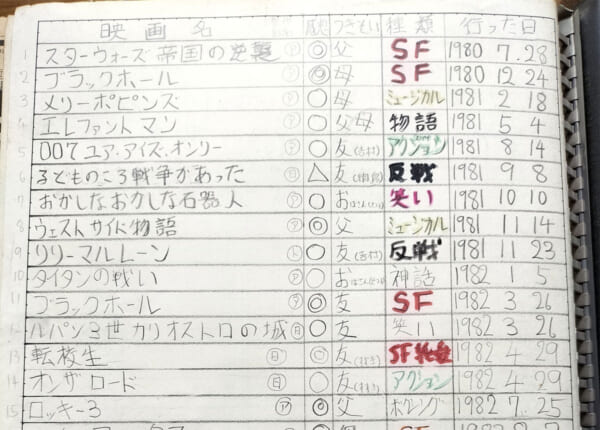 映画名 感 つきそい 種類 行った日
1 スターウォーズ帝国の逆襲 ア ◎ 父 SF 1980 7.28
2 ブラックホール ア ◎ 母 SF 1980 12 24
3 メリーポピンズ ア ○ 母 ミュージカル 1981 2 18
4 エレファントマン ア ○ 父母 物語 1981 5 4
5 007ユア・アイズ・オンリー ア ○ 友(吉村) アクション 1981 8 14
6 子どものころ戦争があった 日 △ 友 反戦 1981 9 8
7 おかしなおかしな石器人 ア ○ お 笑い 1981 10 10
8 ウェストサイド物語 ア ◎ 父 ミュージカル 1981 11 14
9 リリーマルレーン ド ○ 友(吉村) 反戦 1981 11 23
10 タイタンの戦い ア ○ お 神話 1982 1 5
11 ブラックホール ア ◎ 友 SF 1982 3 26
12 ルパン3世カリオストロの城 日 ○ 友 笑い 1982 3 26
13 転校生 日 ○ 友 SF 1982 4 29
14 オンザロード 日 ○ 友 アクション 1982 4 29
15 ロッキー3 ア ◎ 父 ボクシング 1982 7 25